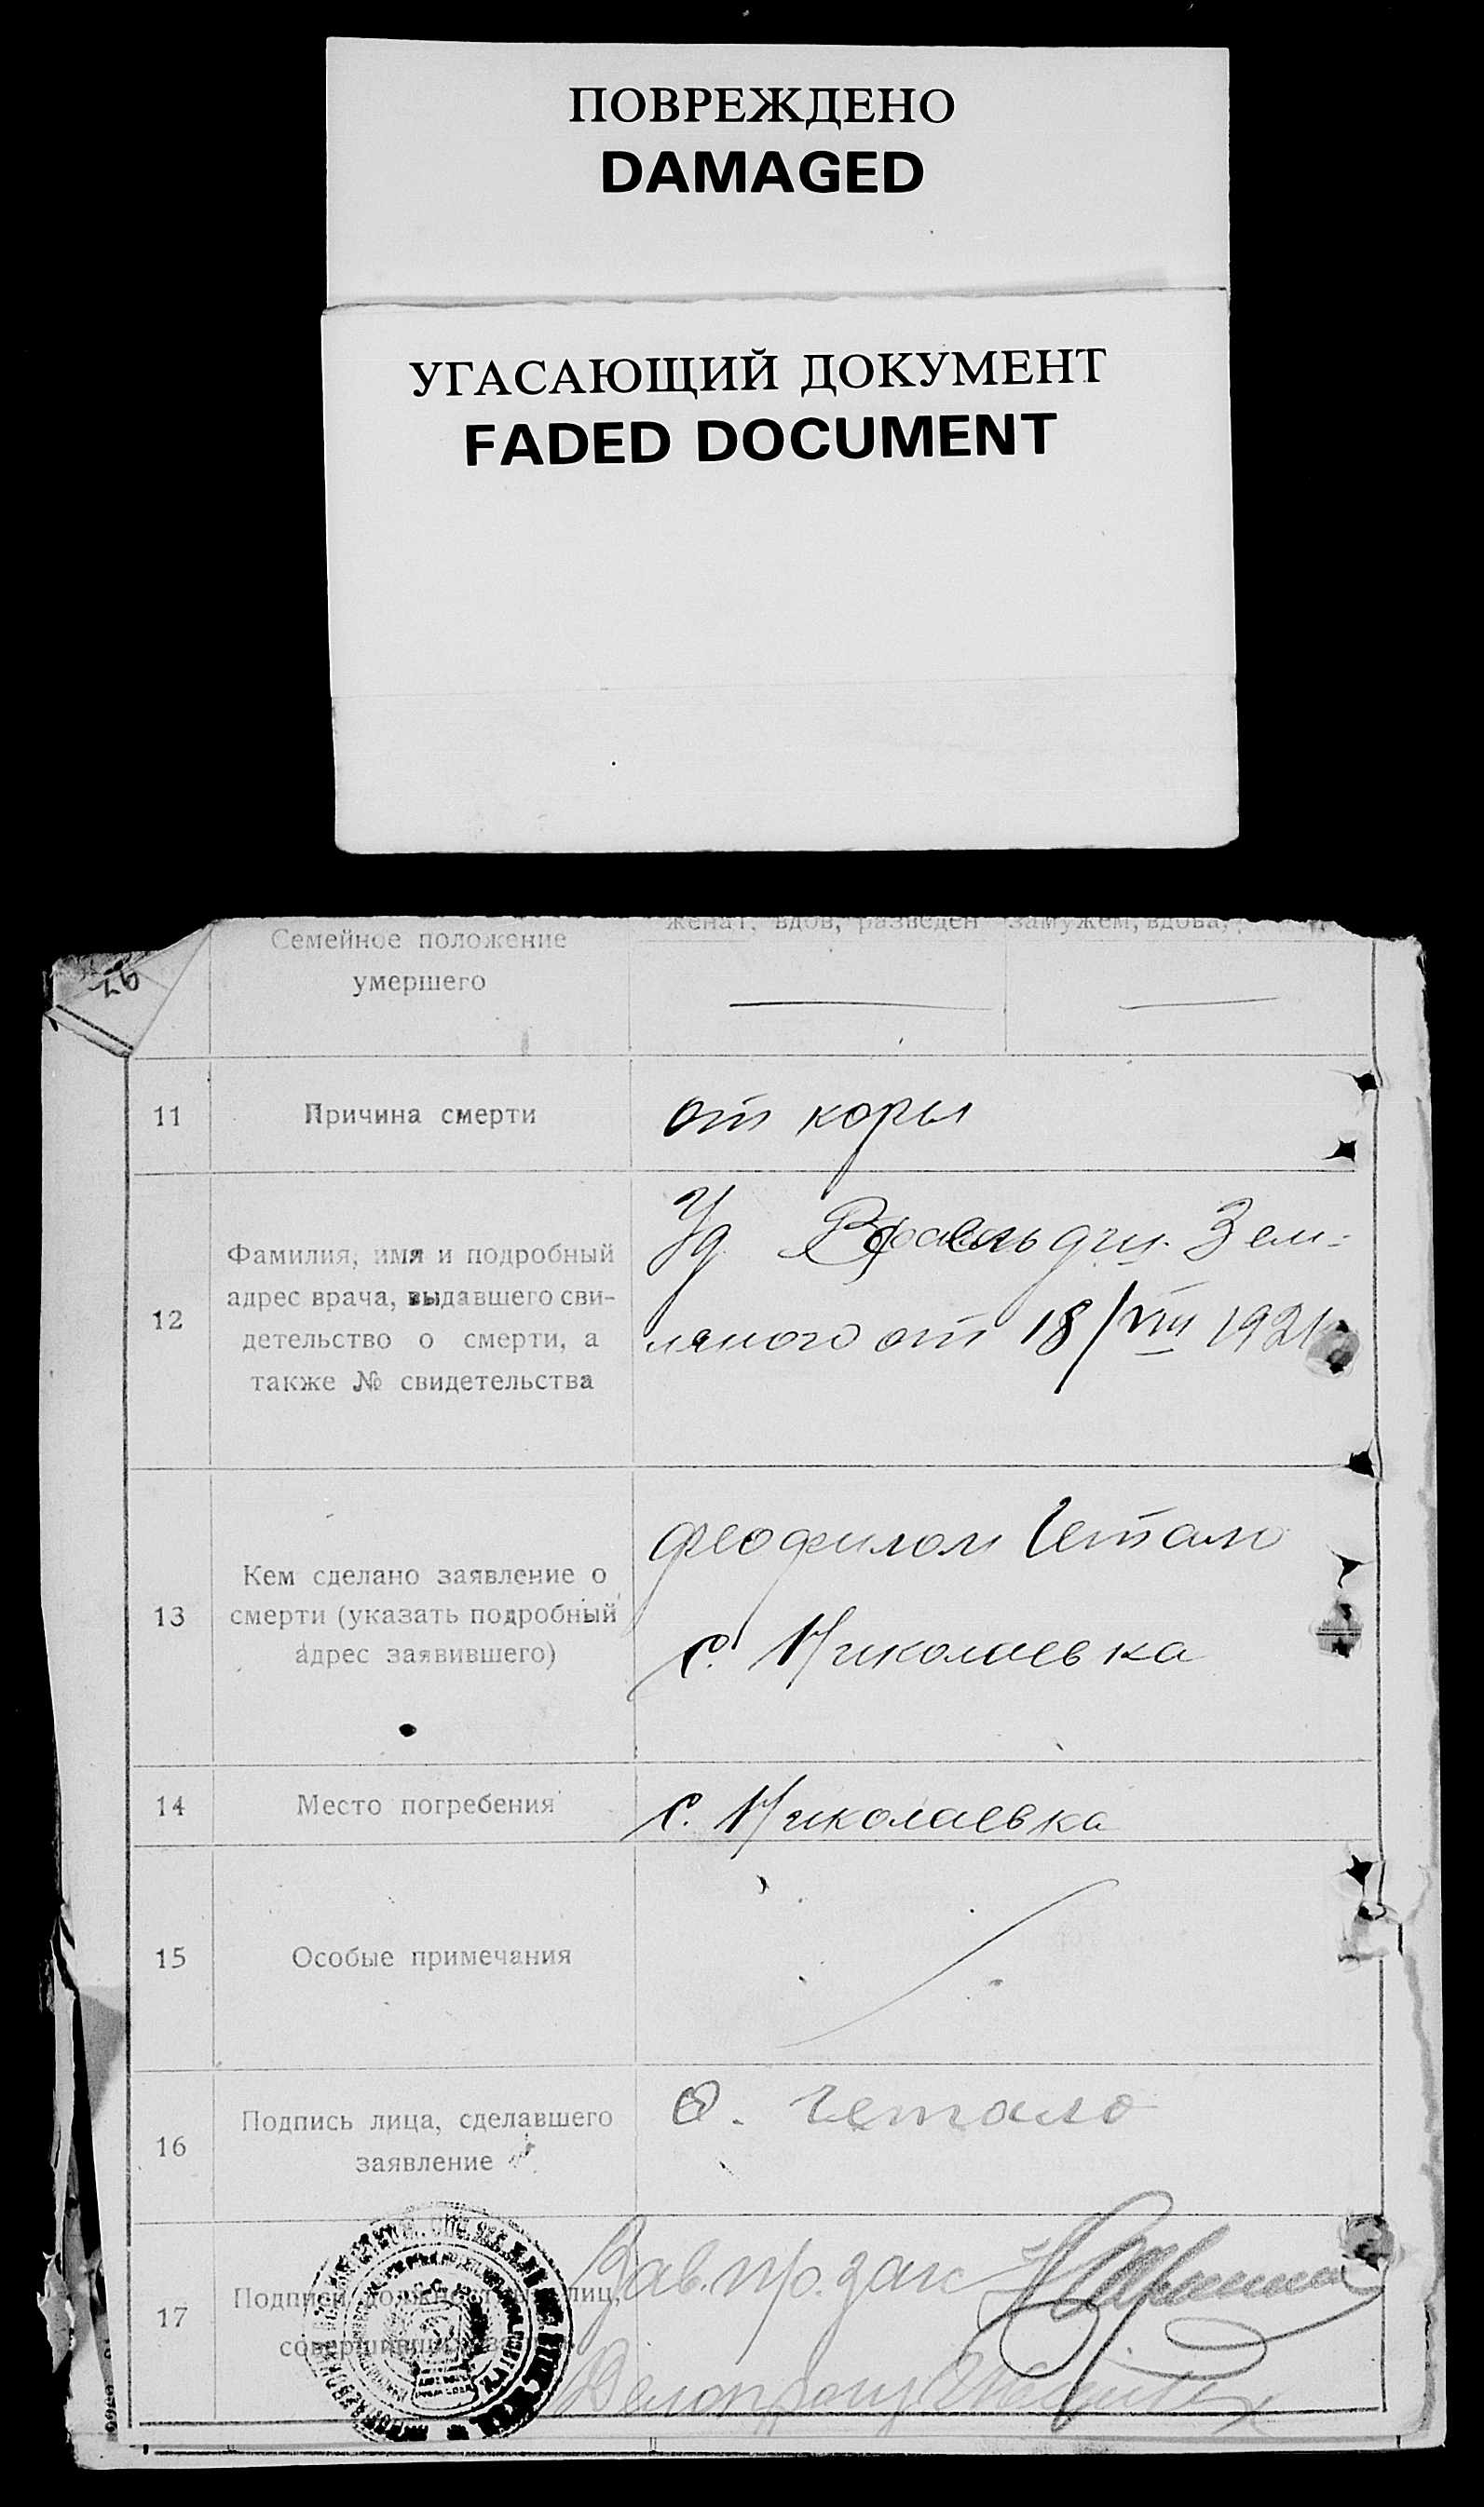 ПОВРЕЖДЕНО
DAMAGED
УГАСАЮЩИЙ ДОКУМЕНТ
FADED DOCUMENT
женат, вдов, разведен замужем, вдова,
Семейное положение
умершего
11
Причина смерти
от коры
12
Фамилия, имя и подробный
адрес врача, выдавшего сви-
детельство о смерти, а
также № свидетельства
Уд Зем-
ляного от 18/VIII 1921
13
Кем сделано заявление о
смерти (указать подробный
адрес заявившего)
Феофилом Гетало
с. Николаевка
14
Место погребения
с. Николаевка
15
Особые примечания
16
Подпись лица, сделавшего
заявление
Ф. Гетало
17
Подписи лиц,
Зав.